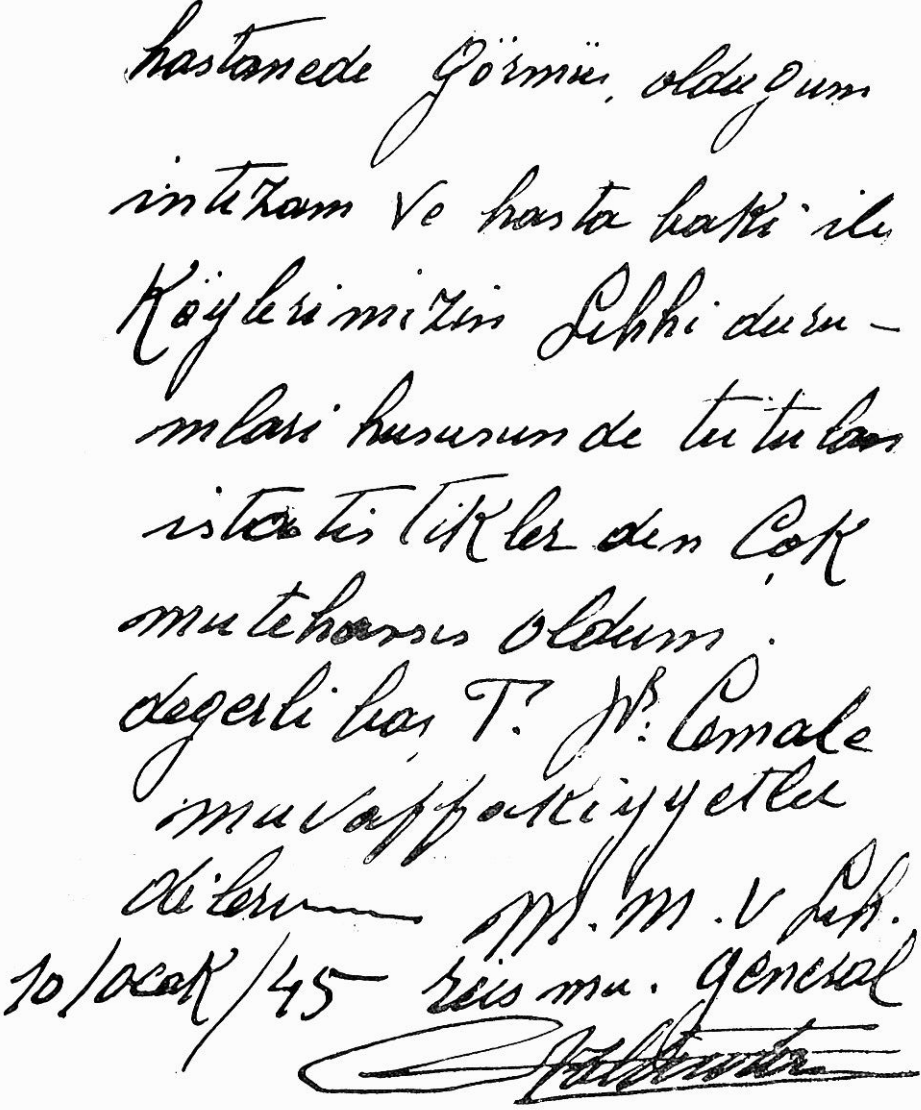 hastanede görmüş olduğum
intizam ve hasta baki ile
Köylerimizin Sıhhi duru-
mlari hususunde tutulan
istatistikler den Çok
mutehassıs oldum.
degerli baş T. Dr. Cemale
muvaffakiyyetler
dilerim M. M. V Sıh.
10/ocak/45 reis mu. General